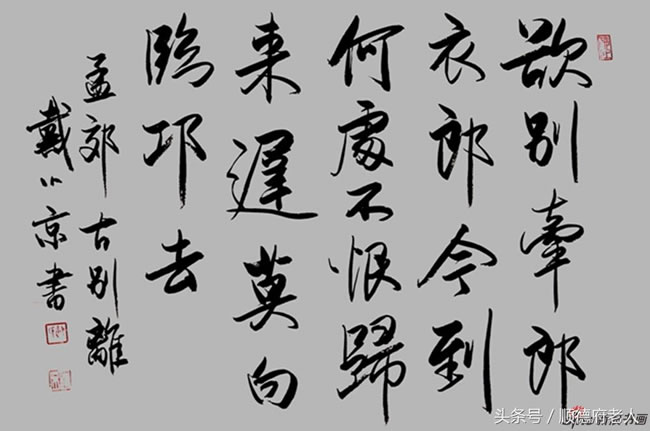 欲别牵郎
衣郎今到
何處不恨歸
来遲莫向
臨邛去
孟郊古别離
戴小京書
头条号／顺德府老人